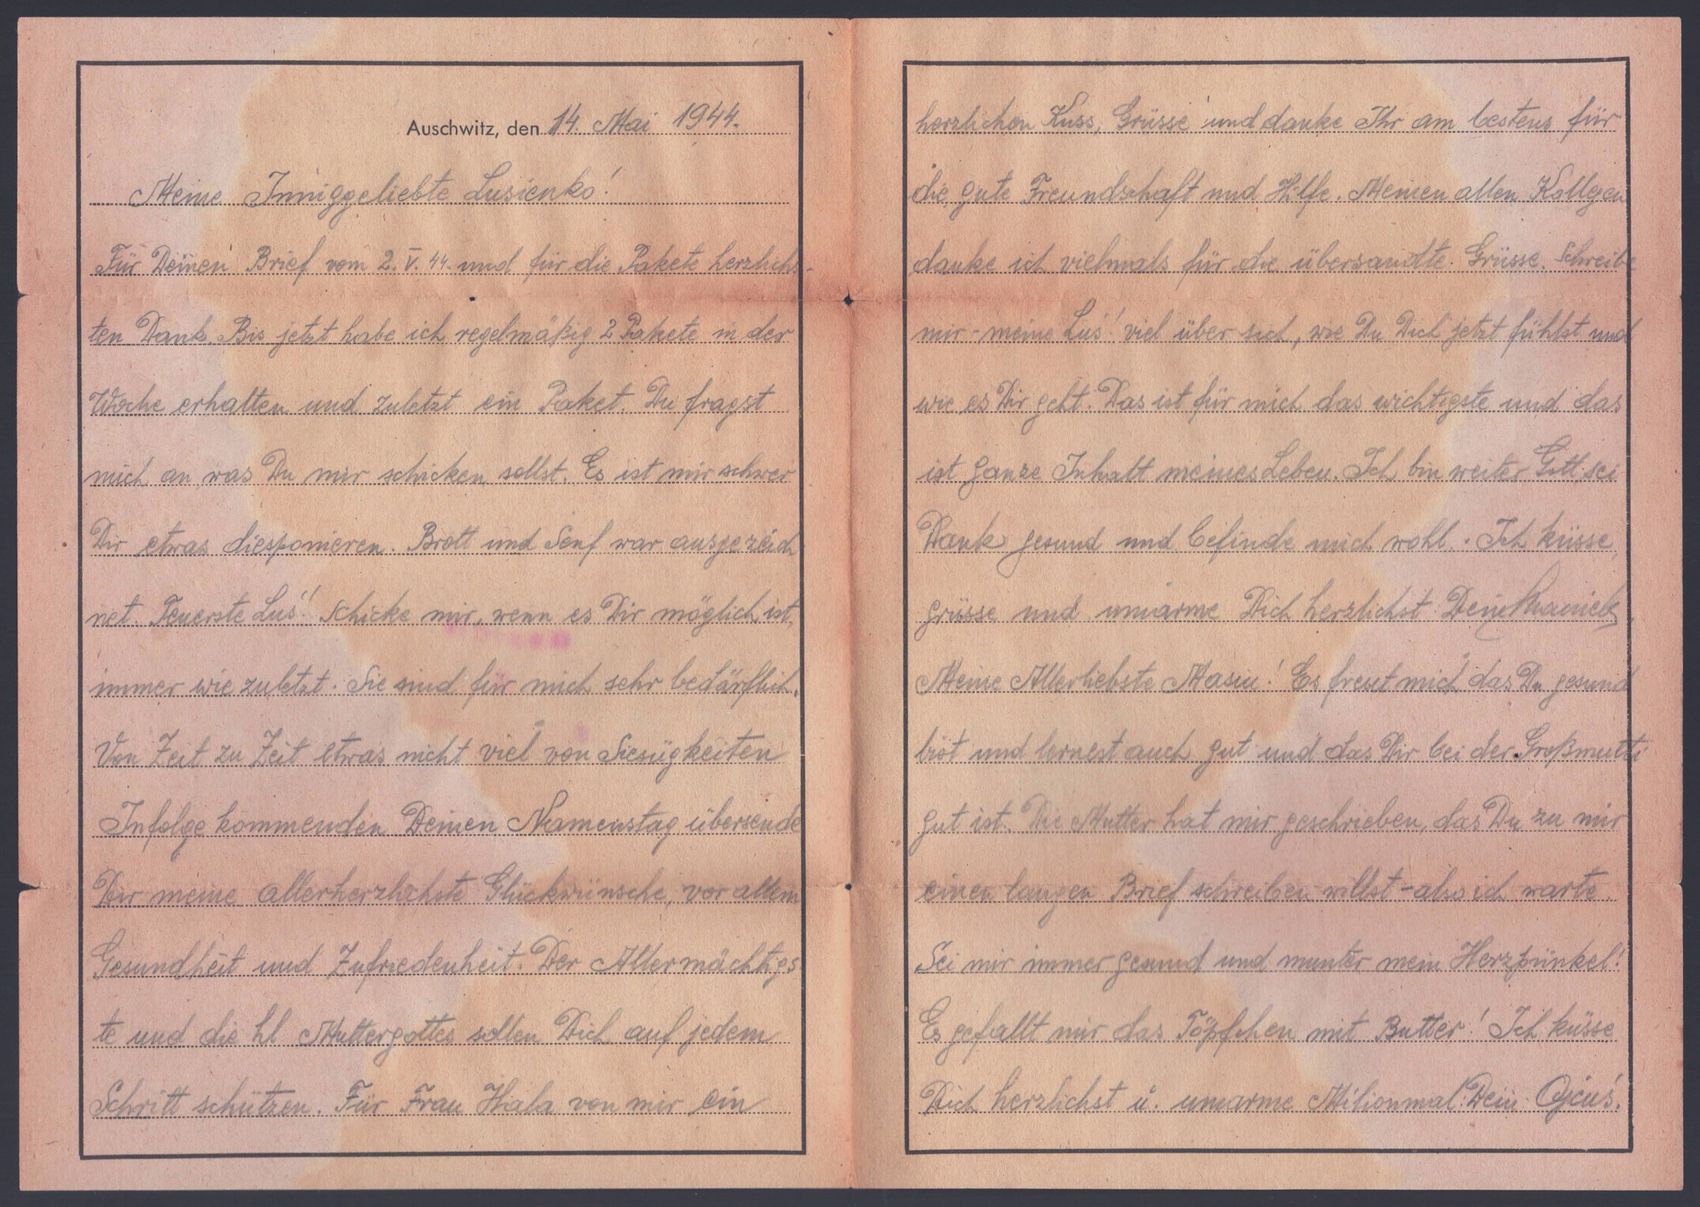 Auschwitz, den 14. Mai 1944.
Meine Inniggeliebte Lusieńko!
Für Deinen Brief vom 2. V. 44. und für die Pakete herzlichs-
ten Dank. Bis jetzt habe ich regelmäßig 2 Pakete in der
Woche erhalten und zuletzt ein Paket. Du fragst
mich an, was Du mir schicken sollst. Es ist mir schwer
Dir etwas diesponieren. Brott und Senf war ausgezeich
net. Teuerste Luś! Schicke mir, wenn es Dir möglich ist,
immer wie zuletzt. Sie sind für mich sehr bedärflich.
Von Zeit zu Zeit etwas nicht viel von Siesügkeiten
Infolge kommenden Deinen Namenstag übersende
Dir meine allerherzlichste Glückwünsche, vor allem
Gesundheit und Zufriedenheit. Der Allermächtigs
te und die hl. Muttergottes sollen Dich auf jedem
Schritt schützen. Für Frau Hala von mir ein
herzlichen Kuss, Grüsse und danke Ihr am bestens für
die gute Freundschaft und Hilfe. Meinen allen Kollegen
danke ich vielmals für die übersandte Grüsse. Schreibe
mir - meine Luś! viel über sich, wie Du Dich jetzt fühlst und
wie es Dir geht. Das ist für mich das wichtigste und das
ist ganze Inhalt meines Leben. Ich bin weiter Gott sei
Dank gesund und befinde mich wohl. Ich küsse,
grüsse und umarme Dich herzlichst Dein
Meine Allerliebste Masiu! Es freut mich das Du gesund
bist und lernest auch gut und das Dir bei der Großmutti
gut ist. Die Mutter hat mir geschrieben, das Du zu mir
einen langen Brief schreiben willst - also ich warte.
Sei mir immer gesund und munter mein Herzpünkel!
Es gefallt mir das Töpfchen mit Butter! Ich küsse
Dich herzlichst u. umarme Milionmal. Dein Ojcuś.